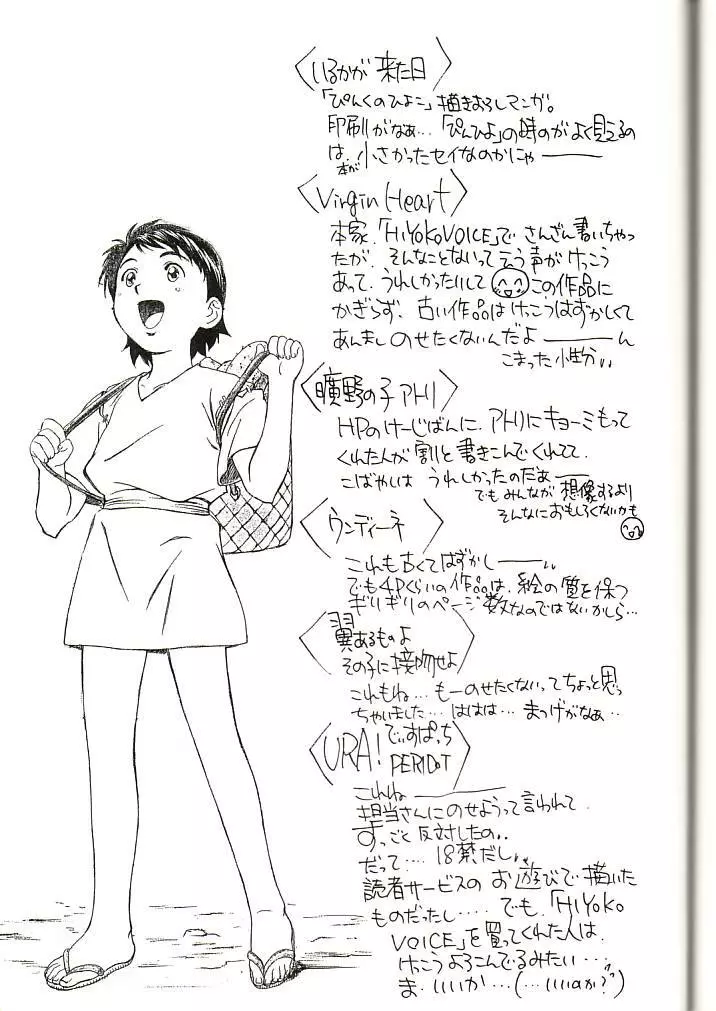 いるかが来た日
「ぴんくのひよこ」描きおろしマンガ。
印刷がなぁ…「ぴんひよ」の時のがよく見えるの
は、本が小さかったセイなのかにゃ——
Virgin Heart
本家、「HiYoKoVOICE」で さんざん書いちゃっ
たが、そんなことないって言う声がけっこう
あって、うれしかったりして この作品に
かぎらず、古い作品はけっこうはずかしくて
あんまし のせたくないんだよ——ん
こまった性分
曠野の子アハリ
HPのけーじばんに、アハリにキョーミもって
くれた人が割と書きこんでくれてて、
こばやしは うれしかったのだぁ——
でもみんなが想像するより
そんなにおもしろくないかも
ウンディーネ
これも古くてはずかし——
でも4Pくらいの作品は、絵の質を保つ
ギリギリのページ数なのではないかしら…
翼あるものよ
その子に接吻せよ
これもね…もーのせたくないってちょっと思っ
ちゃいました…ははは… まつげがなぁ‥
URA! でぃすぱっち PERIDOT
これね——
担当さんにのせようって言われて
すっごく反対したの、
だって…18禁だし、
読者サービスの お遊びで描いた
ものだったし…。でも、「HIYoKo
VOICE」を買ってくれた人は、
けっこうよろこんでるみたい…
ま、いいか…(…いいのか?)